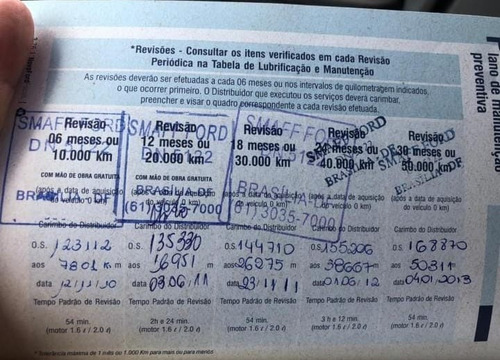 *Revisões - Consultar os itens verificados em cada Revisão
Periódica na Tabela de Lubrificação e Manutenção
As revisões deverão ser efetuadas a cada 06 meses ou nos intervalos de quilometragem indicados
o que ocorrer primeiro. O Distribuidor que executou os serviços deverá carimbar,
preencher e visar o quadro correspondente a cada revisão efetuada.
Plano de manutenção
preventiva
SMAFF FORD SMAFF FORD SMAFF FORD SMAFF FORD
Revisão Revisão Revisão Revisão Revisão
06 meses ou 12 meses ou 18 meses ou 24 meses ou 30 meses ou
10.000 km 20.000 km 30.000 km 40.000 km 50.000 km
COM MÃO DE OBRA GRATUITA COM MÃO DE OBRA GRATUITA
(após a data de aquisição
do veículo 0 km)
BRASÍLIA-DF BRASÍLIA-DF
(61) 3035-7000 (61) 3035-7000
Carimbo do Distribuidor Carimbo do Distribuidor Carimbo do Distribuidor Carimbo do Distribuidor Carimbo do Distribuidor
O.S. 123112 O.S. 135330 O.S. 144710 O.S. 155206 O.S. 168870
aos 7801 km aos 16951 m aos 26275 m aos 38667 m aos 50311
data 12/11/10 data 03/06/11 data 23/11/11 data 01/06/12 data 04/01/2013
Tempo Padrão de Revisão Tempo Padrão de Revisão Tempo Padrão de Revisão Tempo Padrão de Revisão Tempo Padrão de Revisão
54 min. 2h e 24 min. 54 min. 3 h e 12 min. 54 min.
(motor 1.6 ℓ / 2.0 ℓ) (motor 1.6 ℓ / 2.0 ℓ) (motor 1.6 ℓ / 2.0 ℓ) (motor 1.6 ℓ / 2.0 ℓ) (motor 1.6 ℓ / 2.0 ℓ)
* Tolerância máxima de 1 mês ou 1.000 Km para mais ou para menos